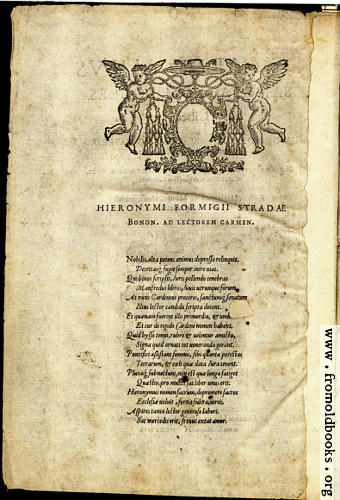 HIERONYMI FORMIGII STRADAE
BONON. AD LECTOREM CARMEN.
Nobilis, alta petens animus depressa relinquit.
Decritaq; fugit semper inire uias.
Qui binos scripsit, iuris pellendo tenebras
Manfredus libros, iuuit utrunque forum.
At nunc Cardinei proceres, sanctumq; senatum
Illius lector candida scripta docent.
Et quænam fuerint illis primordia, & unde
Et cur de cupidis Cardine nomen habent.
Quid bysso tonsi, rubro & uelentur amictu,
Signa quid ornati tot ueneranda gerant.
Pontifici assistant summo, sibi quanta potestas
Terrarum, & cæli quæ data iura tenent.
Pluraq; subnectunt, non est quæ longa fatiget
Quæstio, pro multis sat liber unus erit.
Hieronymus numen sacrum, depromere sacros
Ecclesiæ uoluit, firma fulcra, uiros.
Aspires tanto lector generose labori.
Sat mercedis erit, si tuus extat amor.
www.fromoldbooks.org